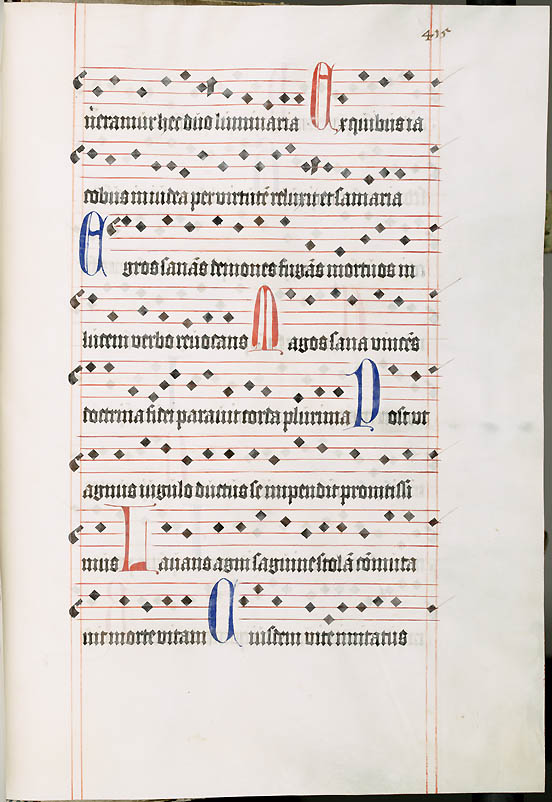 415
neramur hec duo luminaria Ex quibus ia
cobus in iudea per virtutē reluxit et samaria
Egros sanās demones fugās mortuos in
lucem verbo reuocans Magos sana vincēs
doctrina fidei parauit corda plurima Post vt
agnus iugulo ductus se inpendit promtissi
mus Lauans agni sāguine stolā cōmuta
uit morte vitam Cuis tem vite mutatus